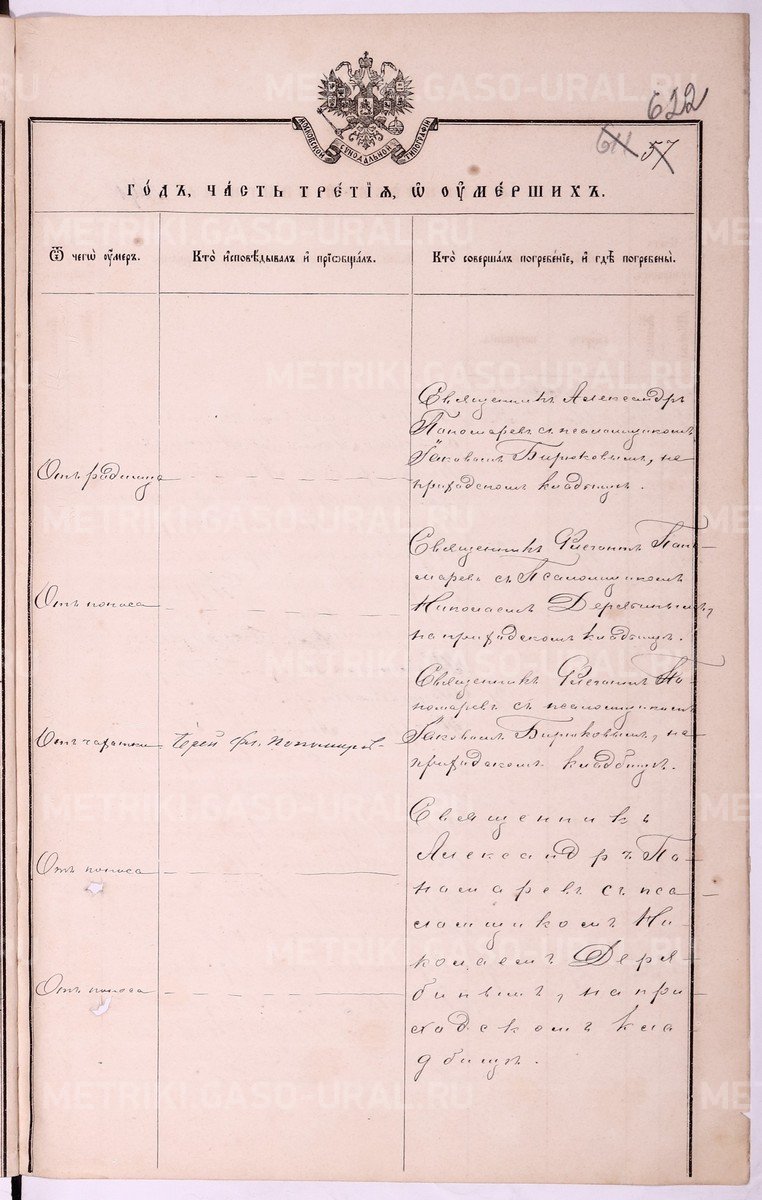 622
611 57
МОСКОВСКОЙ СѴНОДАЛЬНОЙ ТИПОГРАФІИ
ГО́ДЪ, ЧА́СТЬ ТРЕ́ТІѦ, Ѡ҆ ОУ҆МЕ́РШИХЪ.
Ѿ чегѡ̀ оу҆́меръ.
Кто̀ и҆сповѣ́дывалъ и҆ прїѻбща́лъ.
Кто̀ соверша́лъ погребе́нїе, и҆ гдѣ̀ погребены̀.
Отъ родимца
Священникъ Александръ
Пономаревъ съ псаломщикомъ
Іаковомъ Бирюковымъ, на
приходскомъ кладбищѣ.
Отъ поноса
Священникъ Флегонтъ Поно-
маревъ съ Псаломщикомъ
Николаемъ Дерябинымъ,
на приходскомъ кладбищѣ.
Отъ чахотки
Іерей Фл. Пономаревъ
Священникъ Флегонтъ По-
номаревъ съ псаломщикомъ
Іаковомъ Бирюковымъ, на
приходскомъ кладбищѣ.
Отъ поноса
Отъ поноса
Священникъ
Александръ По-
намаревъ съ пса-
ломщикомъ Ни-
колаемъ Деря-
бинымъ, на при-
ходскомъ кла
дбищѣ.
METRIKI.GASO-URAL.RU